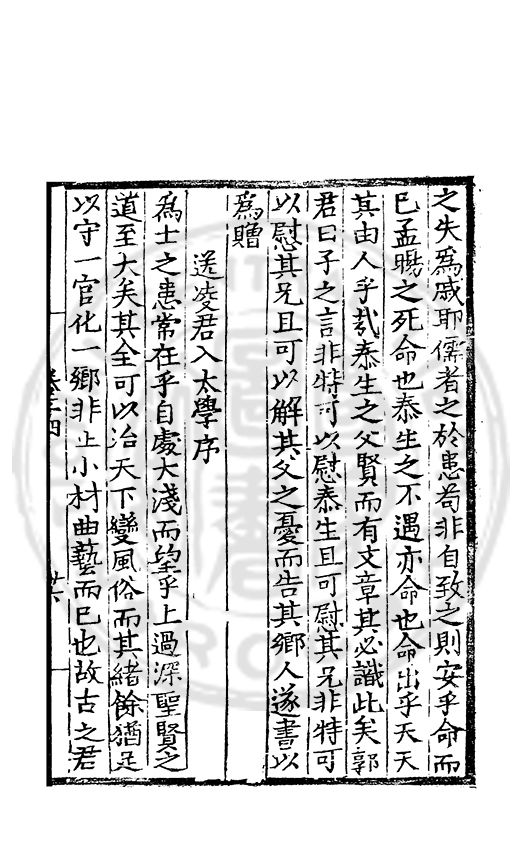 之失為戚耶儒者之於患苟非自致之則安乎命而
已孟暘之死命也泰生之不遇亦命也命出乎天天
其由人乎哉泰生之父賢而有文章其必識此矣郭
君曰子之言非特可以慰泰生且可慰其兄非特可
以慰其兄且可以解其父之憂而告其鄉人遂書以
為贈
送凌君入太學序
為士之患常在乎自處太淺而望乎上過深聖賢之
道至大矣其全可以治天下變風俗而其緒餘猶足
以守一官化一鄉非止小材曲藝而已也故古之君
卷十四
廿六